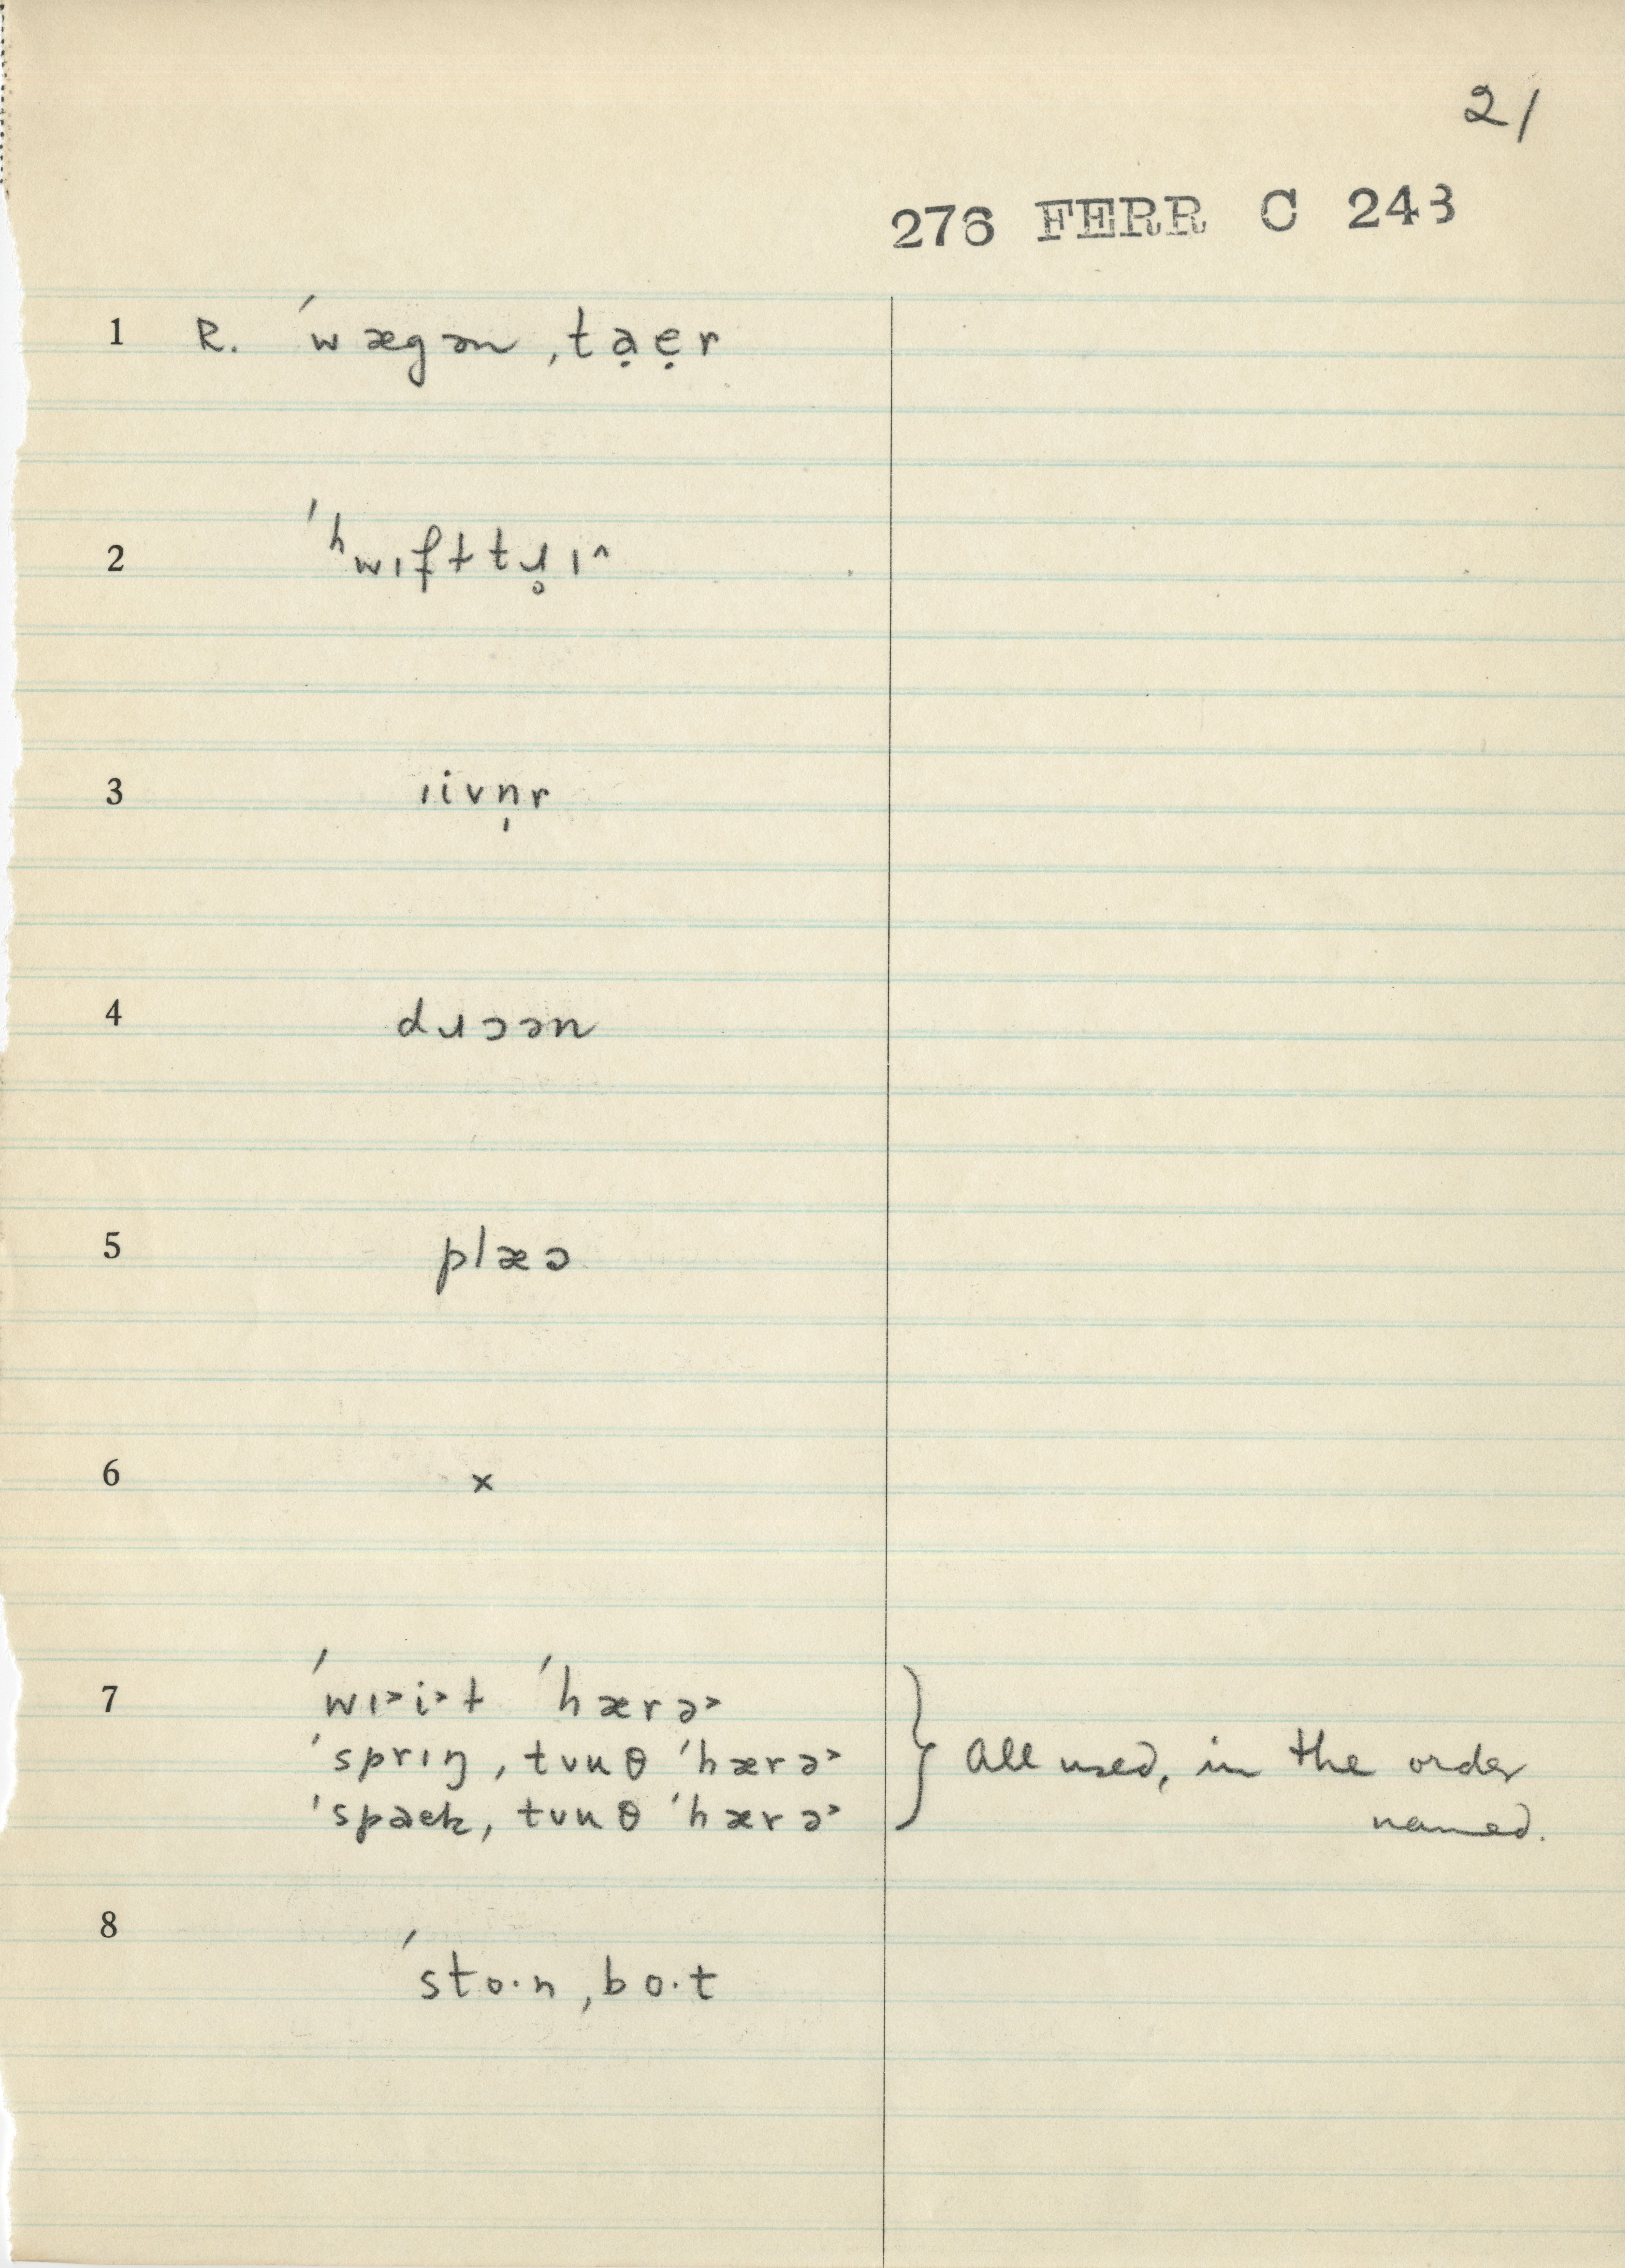 21
276 FERR C 243
1 R. ˈwægən ˌtạẹr
2 ˈʰwɪf̟t tɹ̥ɪ^
3 ɪivn̩r
4 dɹɔən
5 plæɔ
6 ×
7 ˈwɪ˃i˃t ˈhærə˃
ˈsprɪŋ ˌtvuθ ˈhærə˃
ˈspaek ˌtvuθ ˈhærə˃
} All used, in the order
named.
8
ˈsto·n ˌbo·t